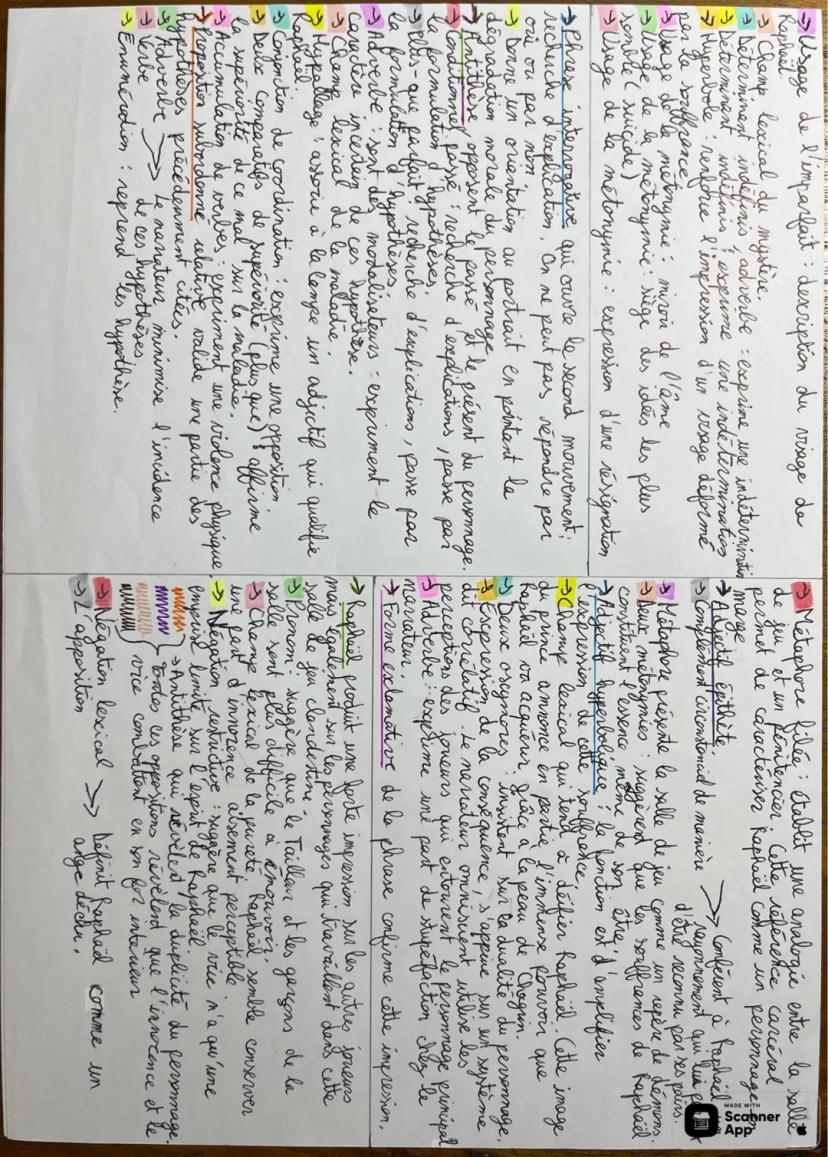 → Usage de l'imparfait : description du visage de
Raphaël
→ Champ lexical du mystère.
→ Déterminent indéfinis, adverbe : exprime une indétermination
→ Déterminant indéfinis : exprime une indétermination
→ Hyperbole : renforce l'impression d'un visage déformé
par la souffrance
→ Usage de la métonymie : miroir de l'âme
→ Usage de la métonymie : siège des idées les plus
sombre (suicide)
→ Usage de la métonymie : expression d'une résignation
→ Phrase interrogative qui ouvre le second mouvement :
recherche d'explication. On ne peut pas répondre par
oui ou par non
→ Donne un orientation au portrait en pointant la
dégradation morale du personnage
→ Antithèse opposent le passé et le présent du personnage.
→ Conditionnel passé : recherche d'explications, passe par
la formulation d'hypothèses.
→ Plus-que parfait : recherche d'explications, passe par
la formulation d'hypothèses.
→ Adverbe : sont des modalisateurs : expriment le
caractère incertain de ces hypothèse.
→ Champ lexical de la maladie.
→ Hypallage : associe à la lampe un adjectif qui qualifie
Raphaël.
→ Conjonction de coordination : exprime une opposition
→ Deux comparatifs de supériorité (plus que) : affirme
la supériorité de ce mal sur la maladie.
→ Accumulation de verbes : expriment une violence physique
→ Proposition subordonné relative valide une partie des
hypothèses précédemment citées.
→ Adverbe → Le narrateur minimise l'incidence
→ Verbe de ces hypothèses
→ Enumération : reprend les hypothèse.
→ Métaphore filée : établit une analogie entre la salle
de jeu et un pénitencier. Cette référence carcéral
permet de caractériser Raphaël comme un personnage en
marge
→ Adjectif épithète.
→ Complément circonstanciel de manière → Confèrent à Raphaël
rayonnement qui lui
d'être reconnu par ses pairs.
→ Métaphore présente la salle de jeu comme un repère de démons.
→ Deux métonymies : suggèrent que les souffrances de Raphaël
constituent l'essence même de son être.
→ Adjectif hyperbolique : la fonction est d'amplifier
l'expression de cette souffrance.
→ Champ lexical qui tend à déifier Raphaël. Cette image
du prince annonce en partie l'immense pouvoir que
Raphaël va acquérir grâce à la peau de Chagrin.
→ Deux oxymores : insistent sur la dualité du personnage.
→ Expression de la conséquence, s'appuie sur un système
dit corrélatif. Le narrateur omniscient utilise les
perceptions des joueurs qui entourent le personnage principal
→ Adverbe : exprime une part de stupéfaction chez le
narrateur
→ Forme exclamative de la phrase confirme cette impression.
→ Raphaël produit une forte impression sur les autres joueurs
mais également sur les personnages qui travaillent dans cette
salle de jeu clandestine
→ Pronom : suggère que le Tailleur et les garçons de la
salle sont plus difficile à émouvoir.
→ Champ lexical de la pureté. Raphaël semble conserver
une part d'innocence aisement perceptible.
→ Négation restrictive : suggère que le vice n'a qu'une
emprise limité sur l'esprit de Raphaël
→ Antithèse qui révèlent la duplicité du personnage.
Toutes les oppositions révèlent que l'innocence et le
vice combattent en son for intérieur
→ Négation lexical → Définit Raphaël comme un
→ L'apposition ange déchu.
MADE WITH
Scanner
App